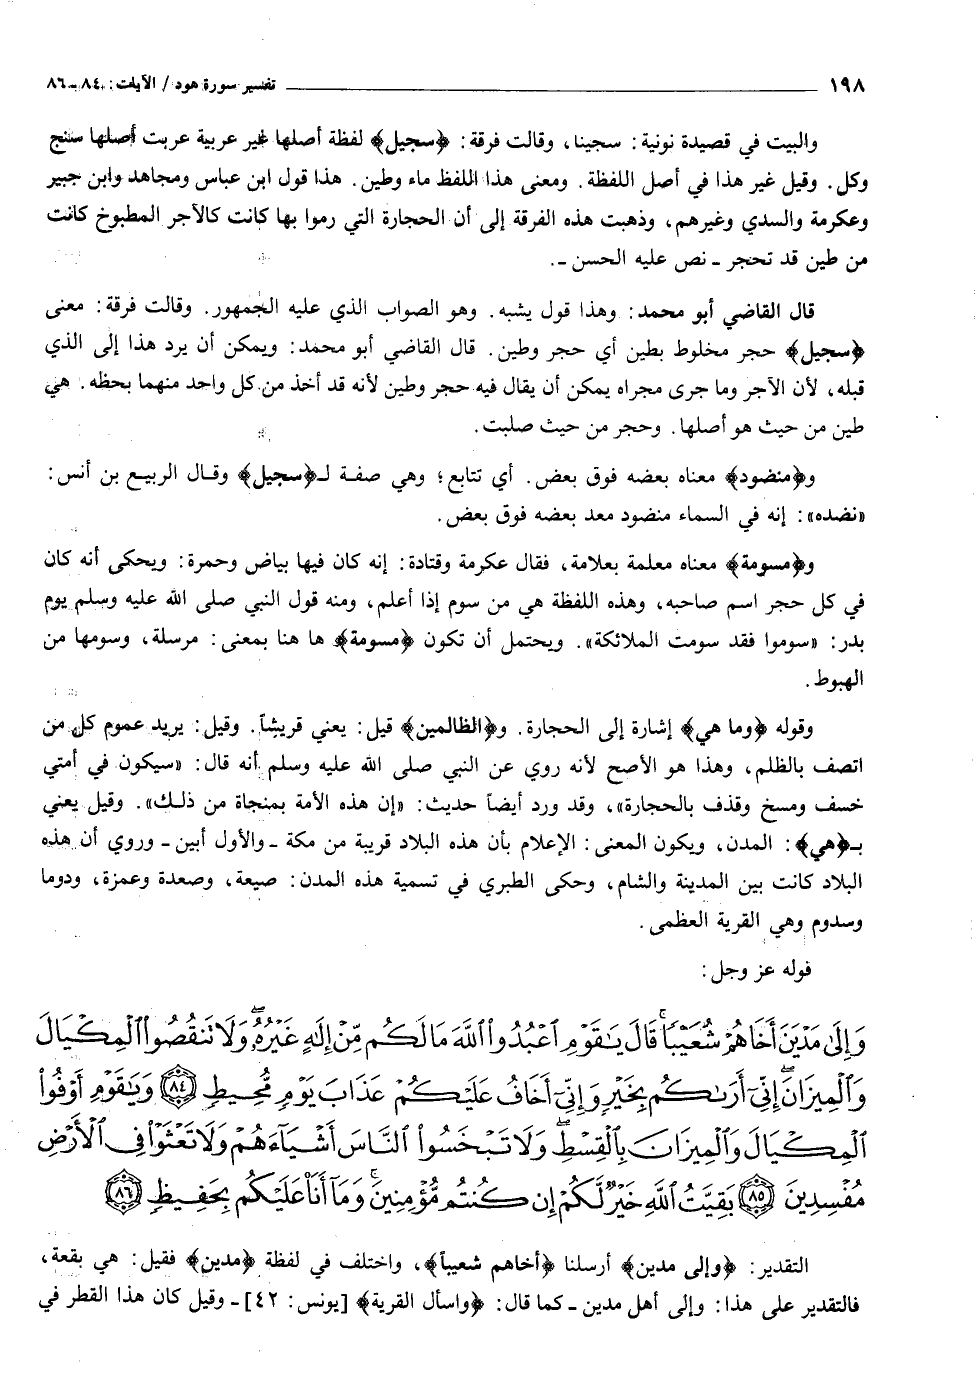 ١٩٨ تفسير سورة هود / الآيات: ٨٤ - ٨٦
والبيت في قصيدة نونية: سجينا، وقالت فرقة: ﴿سجيل﴾ لفظة أصلها غير عربية عربت أصلها سنج
وكل. وقيل غير هذا في أصل اللفظة. ومعنى هذا اللفظ ماء وطين. هذا قول ابن عباس ومجاهد وابن جبير
وعكرمة والسدي وغيرهم، وذهبت هذه الفرقة إلى أن الحجارة التي رموا بها كانت كالآجر المطبوخ كانت
من طين قد تحجر ـ نص عليه الحسن ـ.
قال القاضي أبو محمد: وهذا قول يشبه. وهو الصواب الذي عليه الجمهور. وقالت فرقة: معنى
﴿سجيل﴾ حجر مخلوط بطين أي حجر وطين. قال القاضي أبو محمد: ويمكن أن يرد هذا إلى الذي
قبله، لأن الآجر وما جرى مجراه يمكن أن يقال فيه حجر وطين لأنه قد أخذ من كل واحد منهما بحظه. هي
طين من حيث هو أصلها. وحجر من حيث صلبت.
و﴿منضود﴾ معناه بعضه فوق بعض. أي تتابع؛ وهي صفة لـ﴿سجيل﴾ وقال الربيع بن أنس:
«نضده»: إنه في السماء منضود معد بعضه فوق بعض.
و﴿مسومة﴾ معناه معلمة بعلامة، فقال عكرمة وقتادة: إنه كان فيها بياض وحمرة: ويحكى أنه كان
في كل حجر اسم صاحبه، وهذه اللفظة هي من سوم إذا أعلم، ومنه قول النبي صلى الله عليه وسلم يوم
بدر: «سوموا فقد سومت الملائكة». ويحتمل أن تكون ﴿مسومة﴾ ها هنا بمعنى: مرسلة، وسومها من
الهبوط.
وقوله ﴿وما هي﴾ إشارة إلى الحجارة. و﴿الظالمين﴾ قيل: يعني قريشاً. وقيل: يريد عموم كل من
اتصف بالظلم، وهذا هو الأصح لأنه روي عن النبي صلى الله عليه وسلم أنه قال: «سيكون في أمتي
خسف ومسخ وقذف بالحجارة»، وقد ورد أيضاً حديث: «إن هذه الأمة بمنجاة من ذلك». وقيل يعني
بـ﴿هي﴾: المدن، ويكون المعنى: الإعلام بأن هذه البلاد قريبة من مكة ـ والأول أبين ـ وروي أن هذه
البلاد كانت بين المدينة والشام، وحكى الطبري في تسمية هذه المدن: صيعة، وصعدة وعمزة، ودوما
وسدوم وهي القرية العظمى.
قوله عز وجل:
وَإِلَىٰ مَدْيَنَ أَخَاهُمْ شُعَيْبًا ۚ قَالَ يَـٰقَوْمِ ٱعْبُدُوا۟ ٱللَّهَ مَا لَكُم مِّنْ إِلَـٰهٍ غَيْرُهُۥ ۖ وَلَا تَنقُصُوا۟ ٱلْمِكْيَالَ
وَٱلْمِيزَانَ ۚ إِنِّىٓ أَرَىٰكُم بِخَيْرٍ وَإِنِّىٓ أَخَافُ عَلَيْكُمْ عَذَابَ يَوْمٍ مُّحِيطٍ ﴿٨٤﴾ وَيَـٰقَوْمِ أَوْفُوا۟
ٱلْمِكْيَالَ وَٱلْمِيزَانَ بِٱلْقِسْطِ ۖ وَلَا تَبْخَسُوا۟ ٱلنَّاسَ أَشْيَآءَهُمْ وَلَا تَعْثَوْا۟ فِى ٱلْأَرْضِ
مُفْسِدِينَ ﴿٨٥﴾ بَقِيَّتُ ٱللَّهِ خَيْرٌ لَّكُمْ إِن كُنتُم مُّؤْمِنِينَ ۚ وَمَآ أَنَا۠ عَلَيْكُم بِحَفِيظٍ ﴿٨٦﴾
التقدير: ﴿وإلى مدين﴾ أرسلنا ﴿أخاهم شعيباً﴾، واختلف في لفظة ﴿مدين﴾ فقيل: هي بقعة،
فالتقدير على هذا: وإلى أهل مدين ـ كما قال: ﴿واسأل القرية﴾ [يونس: ٤٢] ـ وقيل كان هذا القطر في